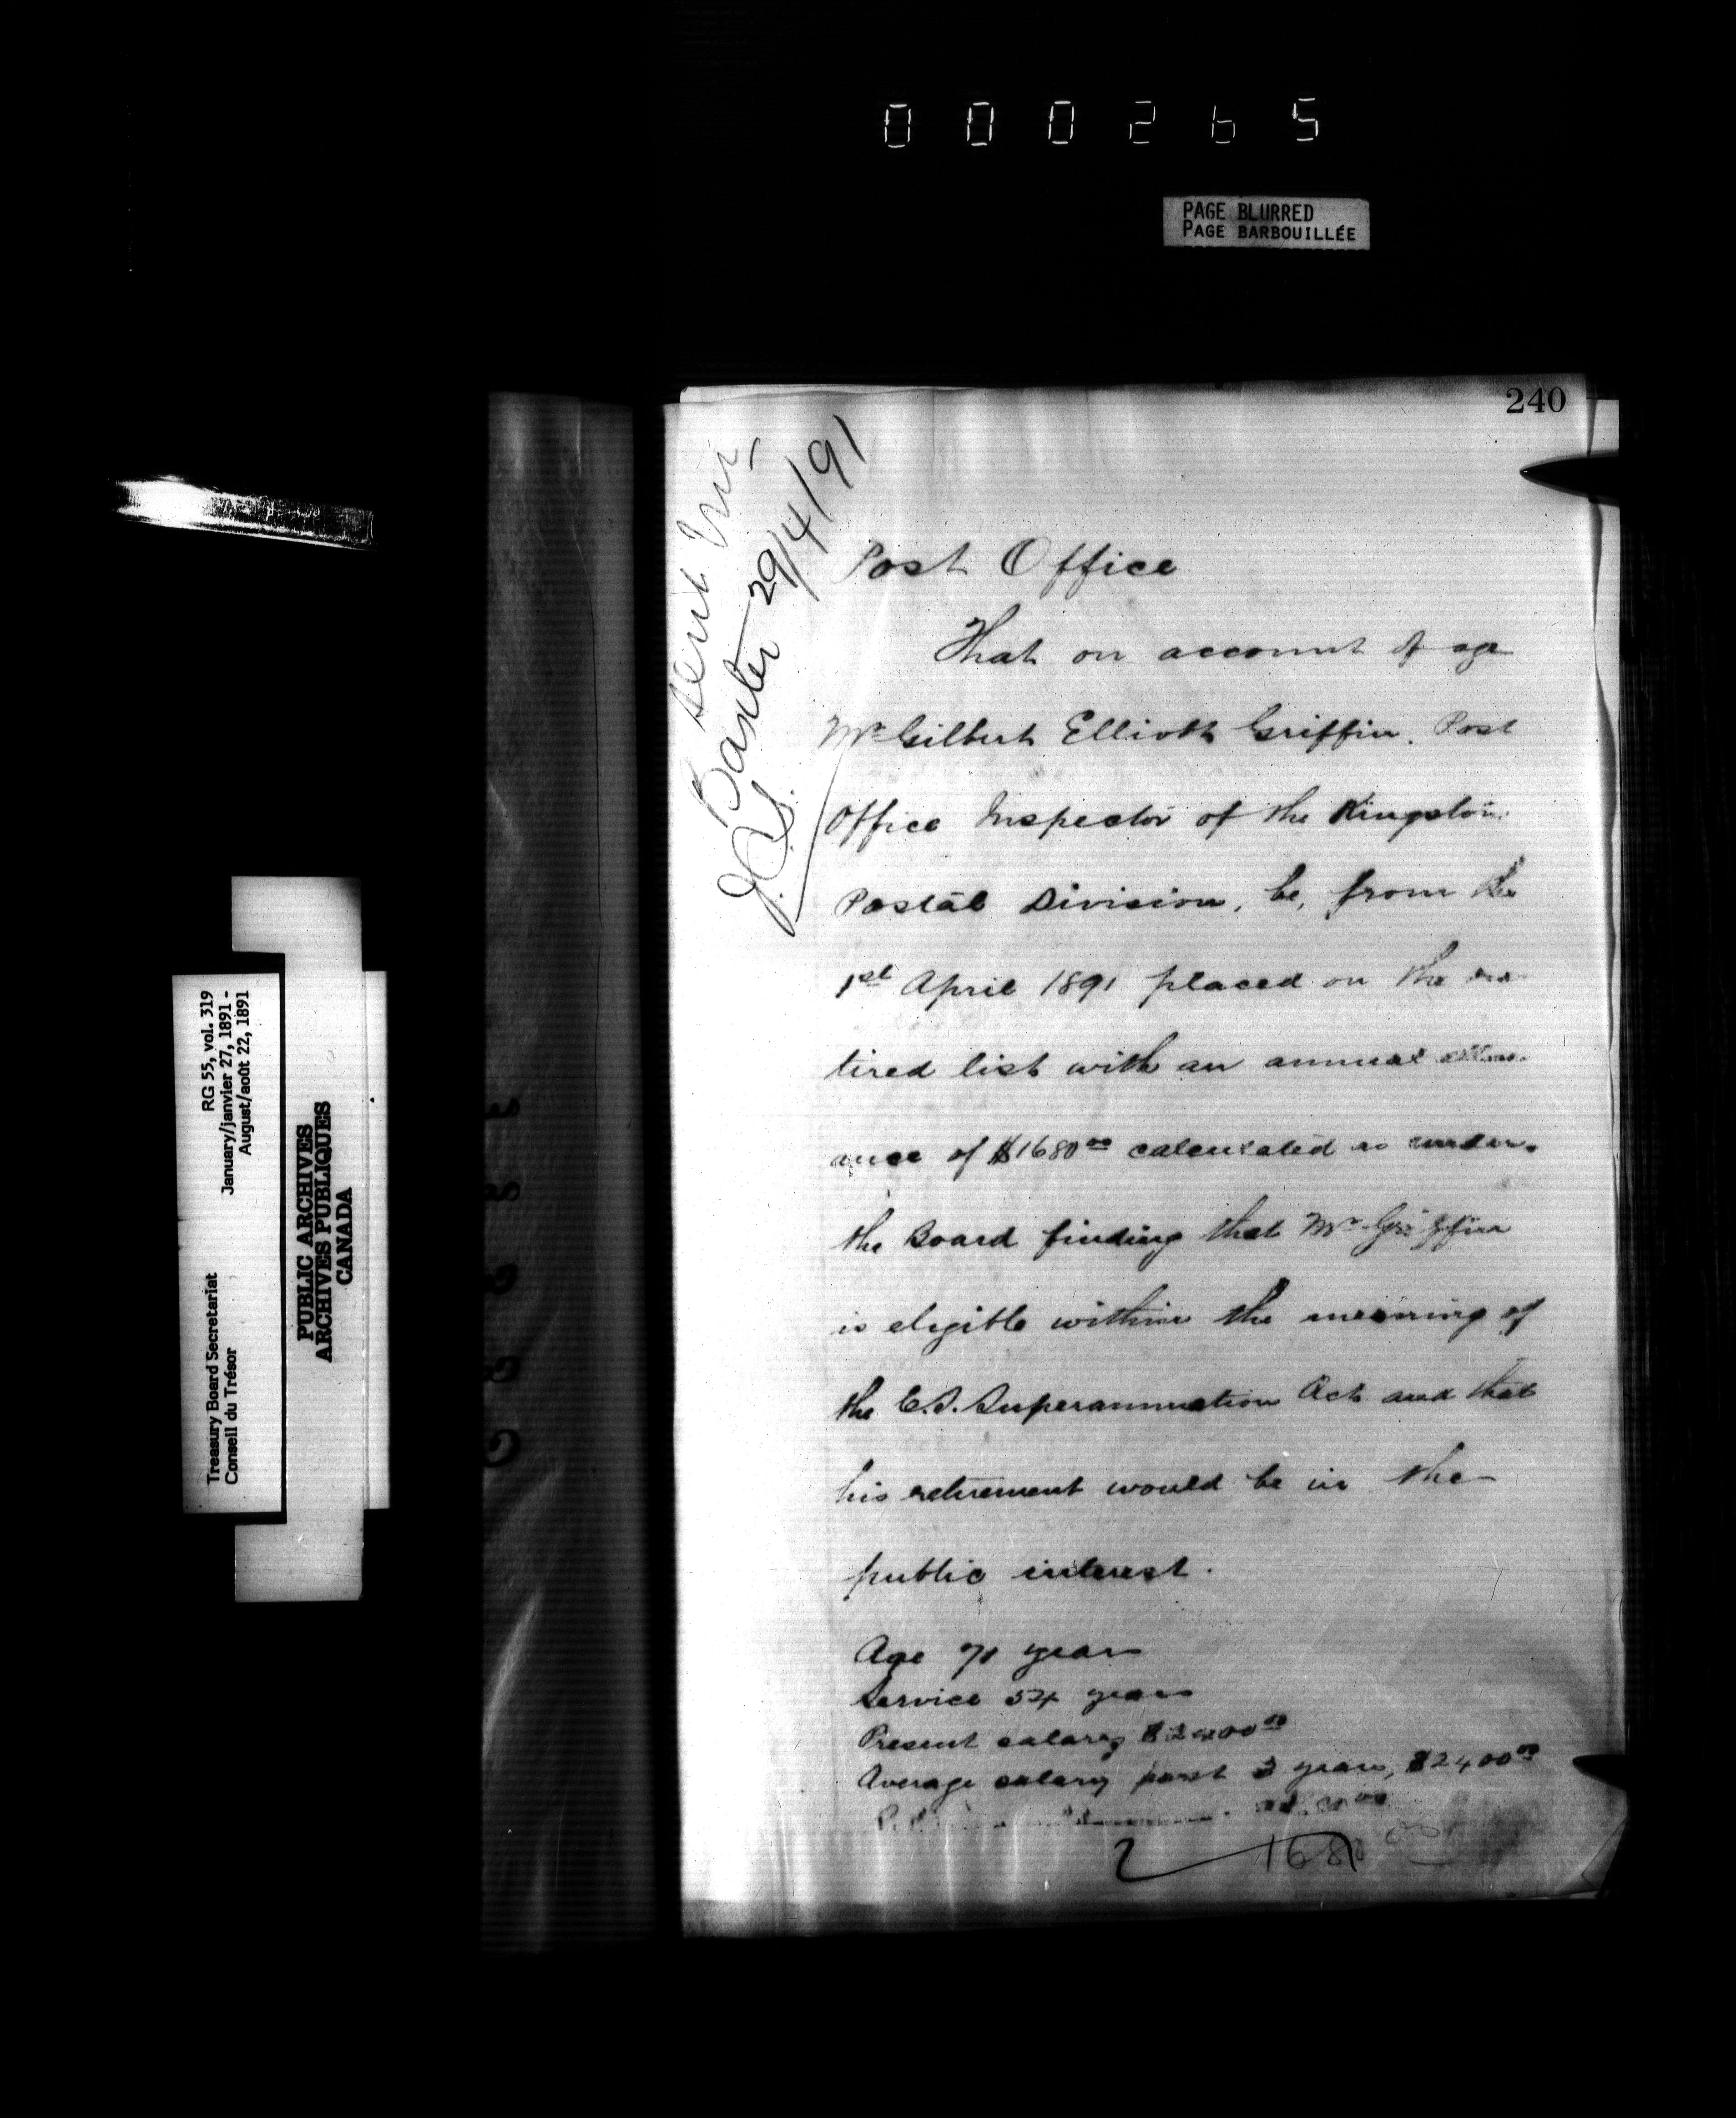 000265
PAGE BLURRED
PAGE BARBOUILLÉE
240
29/4/91
J.C.S.
Post Office
That on account of age
Mr Gilbert Elliott Griffin, Post
Office Inspector of the Kingston
Postal Division, be, from the
1st April 1891 placed on the re
tired list with an annual allow
ance of $1680 00 calculated as under.
the Board finding that Mr Griffin
is eligible within the meaning of
the C.S. Superannuation Act and that
his retirement would be in the
public interest.
Age 71 years
Service 34 years
Present salary $2400 00
Average salary past 3 years, $2400 00
1680
RG 55, vol. 319
January/janvier 27, 1891 -
August/août 22, 1891
Treasury Board Secretariat
Conseil du Trésor
PUBLIC ARCHIVES
ARCHIVES PUBLIQUES
CANADA